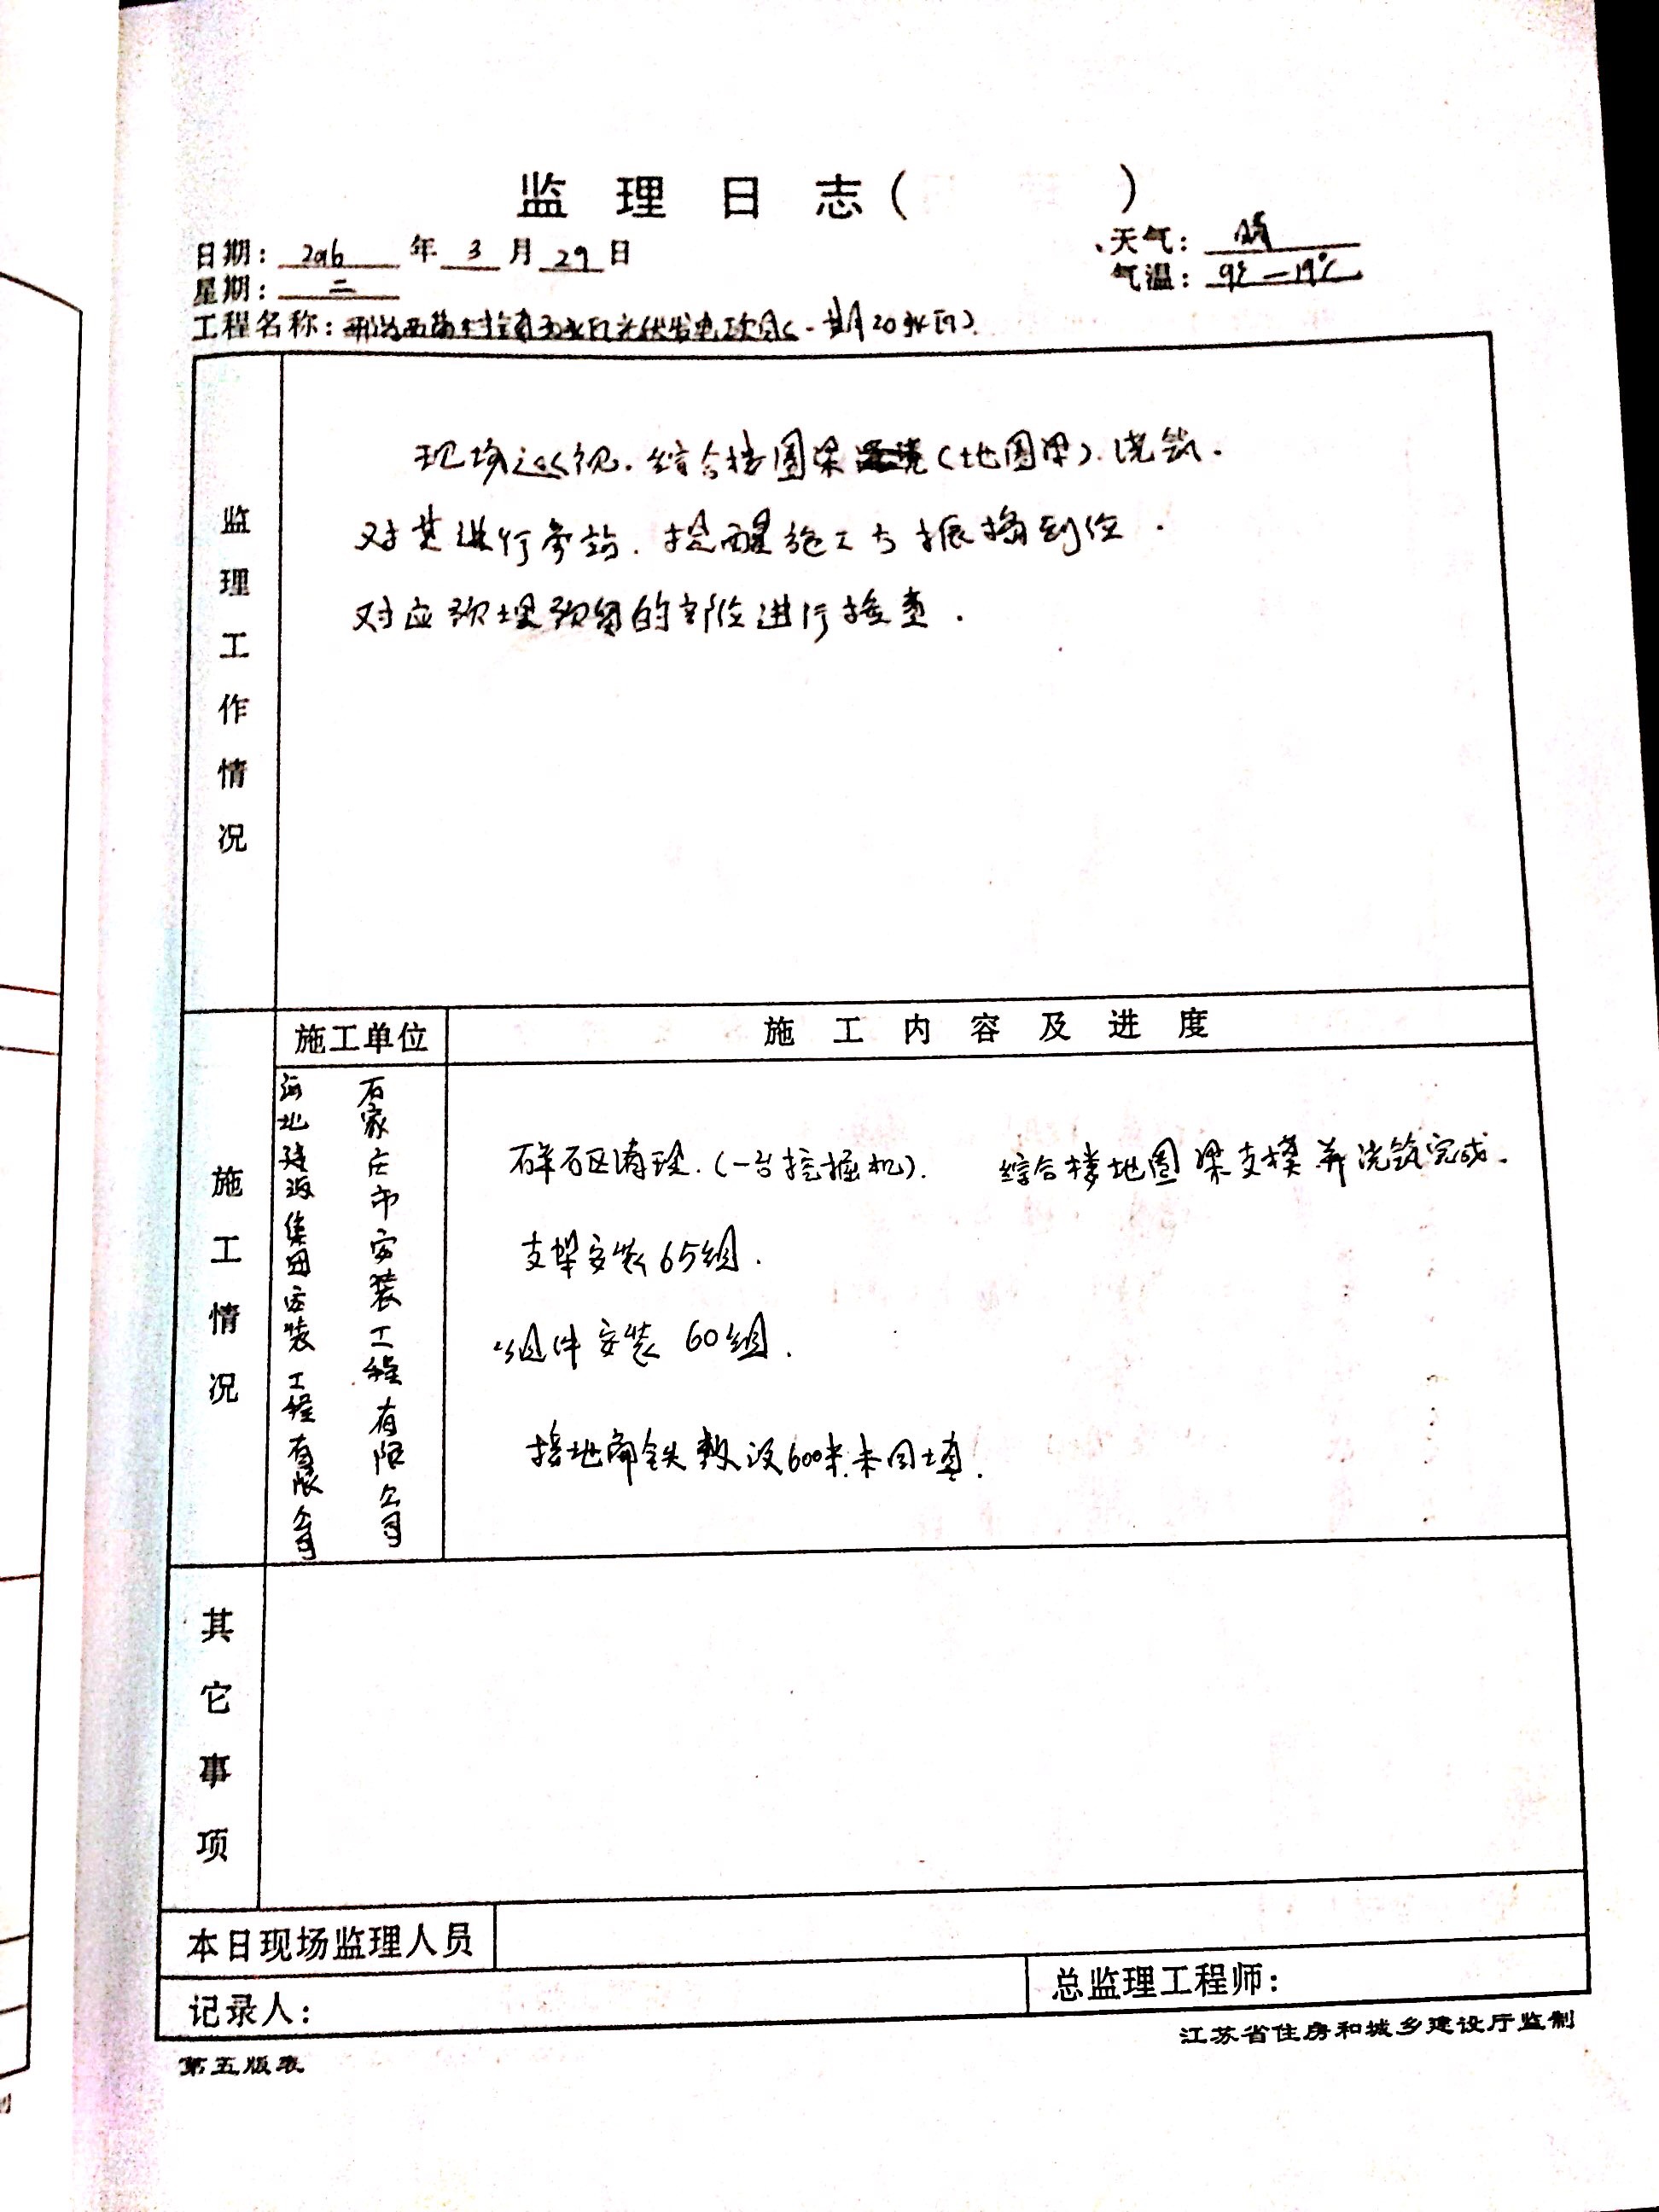 监理日志(　　)
日期: 2016 年 3 月 29 日
天气: 晴
星期: 二
气温: 9℃—19℃
工程名称: 光伏发电项目(一期20兆瓦)
监理工作情况
现场巡视.综合楼圈梁(地圈梁).浇筑.
对其进行旁站.提醒施工方振捣到位.
对应预埋预留的部位进行检查.
施工情况
施工单位
施工内容及进度
石家庄市安装工程有限公司
河北建设集团安装工程有限公司
碎石区清理.(一台挖掘机).　综合楼地圈梁支模并浇筑完成.
支架安装65组.
组件安装 60组.
接地扁铁敷设600米.未回填.
其它事项
本日现场监理人员
记录人:
总监理工程师:
第五版表
江苏省住房和城乡建设厅监制